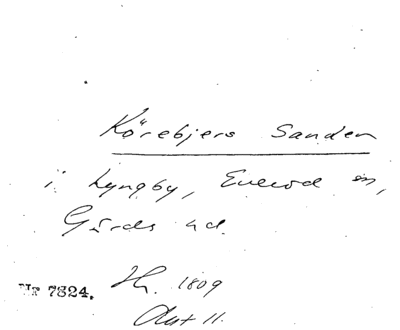 Körebjers Sanden
i Lyngby, Everöd sn,
Gärds hd.
Nr 7824. Hs. 1809
Akt 11.